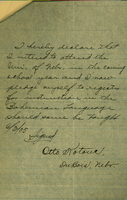 I hereby declare that
I intend to attend the
Univ. of Nebr. in the coming
school year and I now
pledge myself to register
for instruction in the
Bohemian language
should same be taught
Signed
Otto Kotouc
DuBois, Nebr.